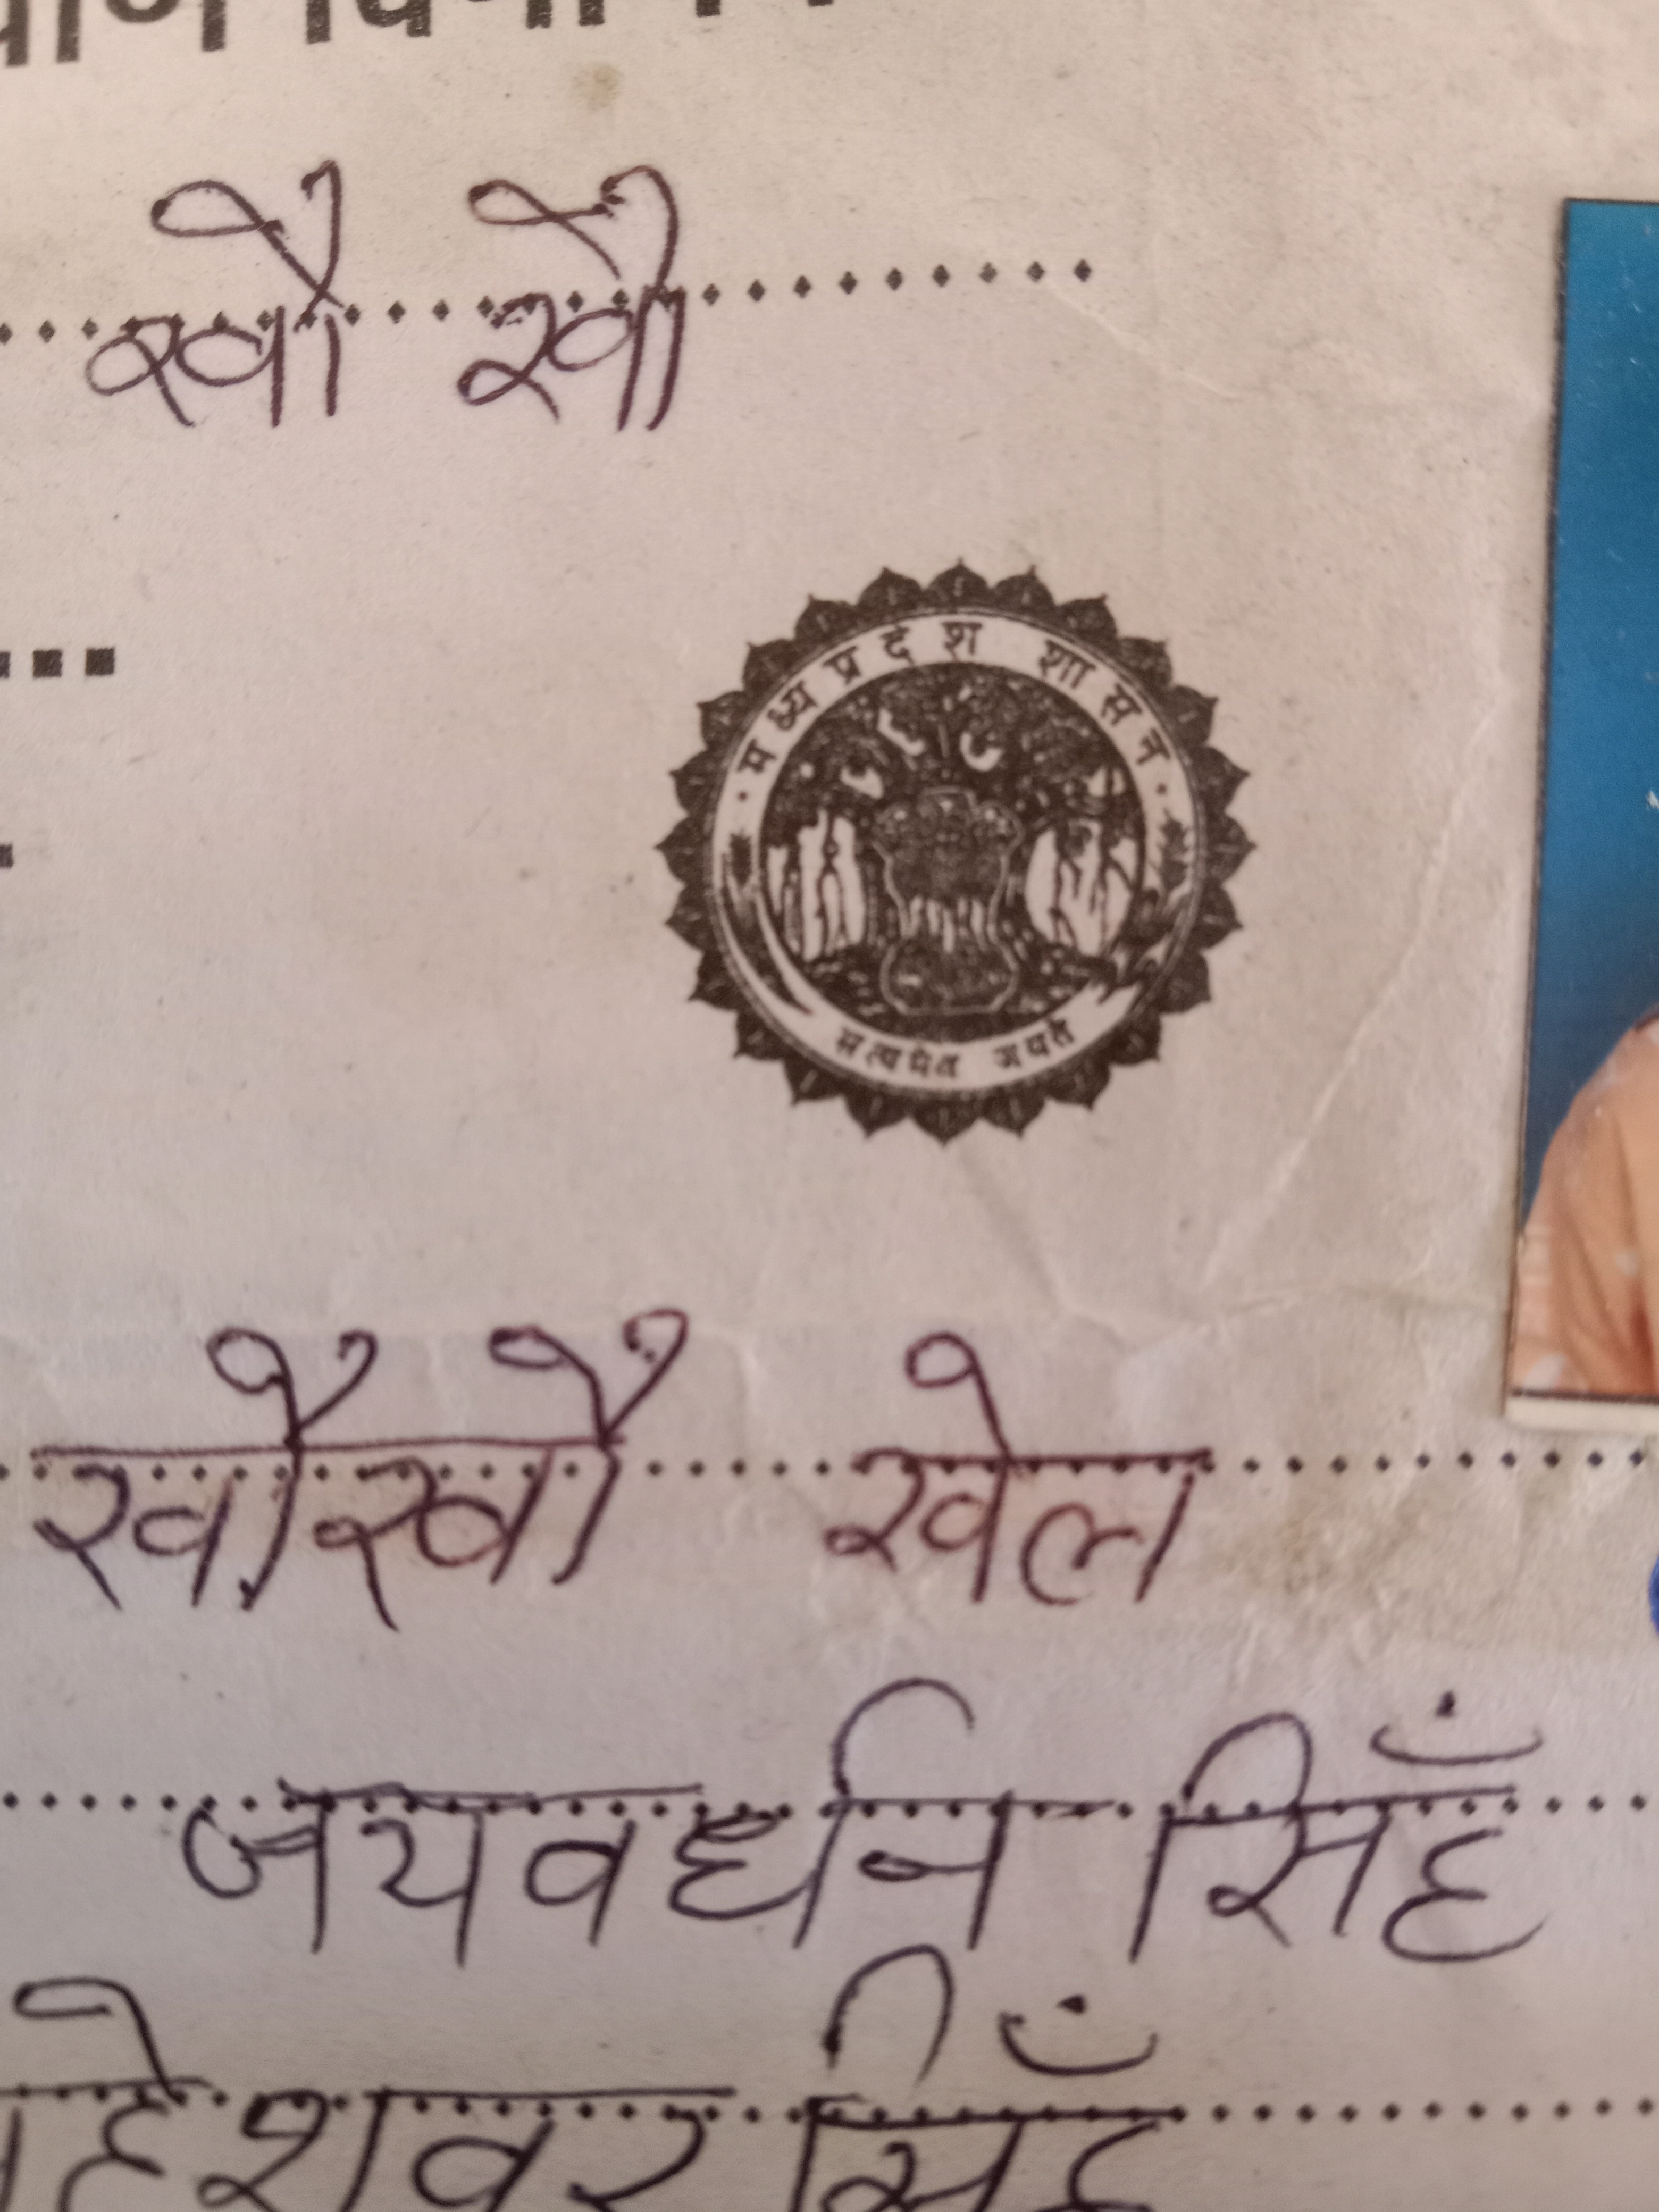 खौ खौ
मध्यप्रदेश शासन
सत्यमेव जयते
खौखौ खेल
जयवर्धन सिहँ
हेशवर सिहँ